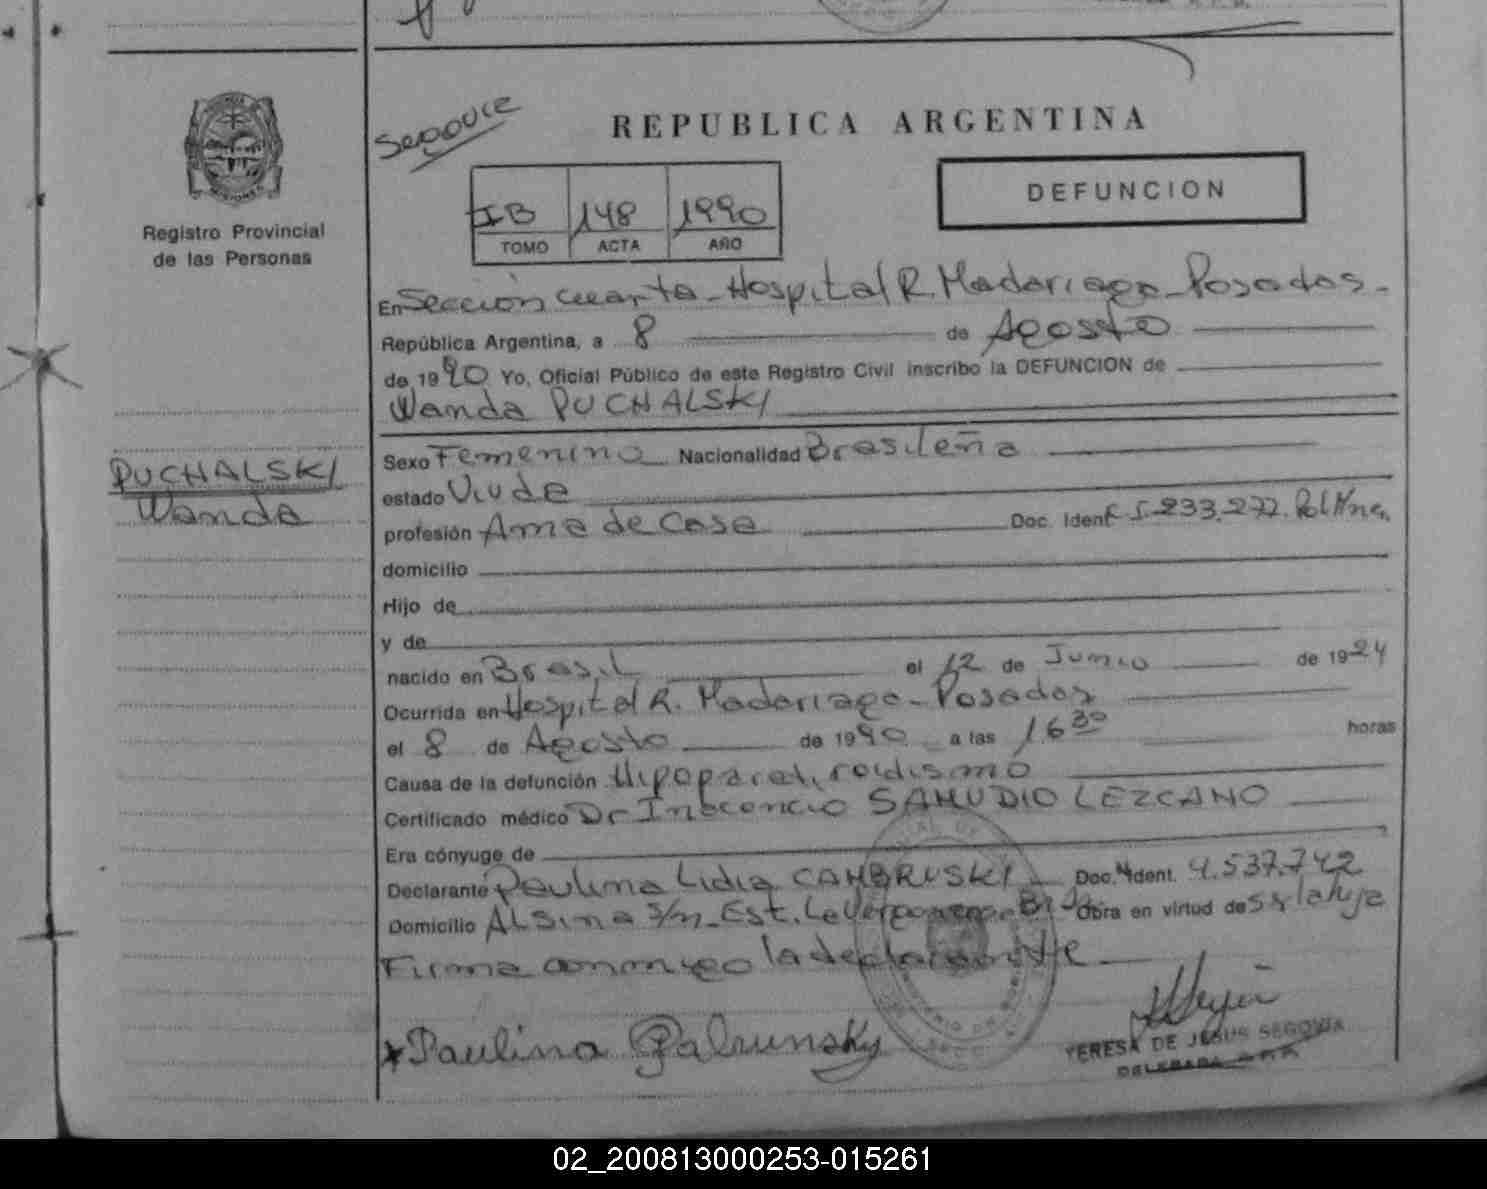 REPUBLICA ARGENTINA
IB 148 1990
TOMO ACTA AÑO
DEFUNCION
Registro Provincial
de las Personas
En Sección cuarta - Hospital R. Madariaga - Posadas -
República Argentina, a 8 de Agosto
de 1990 Yo, Oficial Público de este Registro Civil inscribo la DEFUNCION de
Wanda PUCHALSKI
PUCHALSKI
Wanda
Sexo Femenino Nacionalidad Brasileña
estado Viuda
profesión Ama de Casa Doc. Ident 5.233.277. Pol Mnes.
domicilio
Hijo de
y de
nacido en Brasil el 12 de Junio de 1924
Ocurrida en Hospital R. Madariaga - Posadas
el 8 de Agosto de 1990 a las 16 30 horas
Causa de la defunción Hipoparatiroidismo
Certificado médico Dr Inocencio SAMUDIO LEZCANO
Era cónyuge de
Declarante Paulina Lidia Doc. Ident. 4.537.742
Domicilio Alsina s/n - Est. Obra en virtud de
Firma conmigo la declarante
Paulina
TERESA DE JESUS SEGOVIA
DELEGADA
02_200813000253-015261